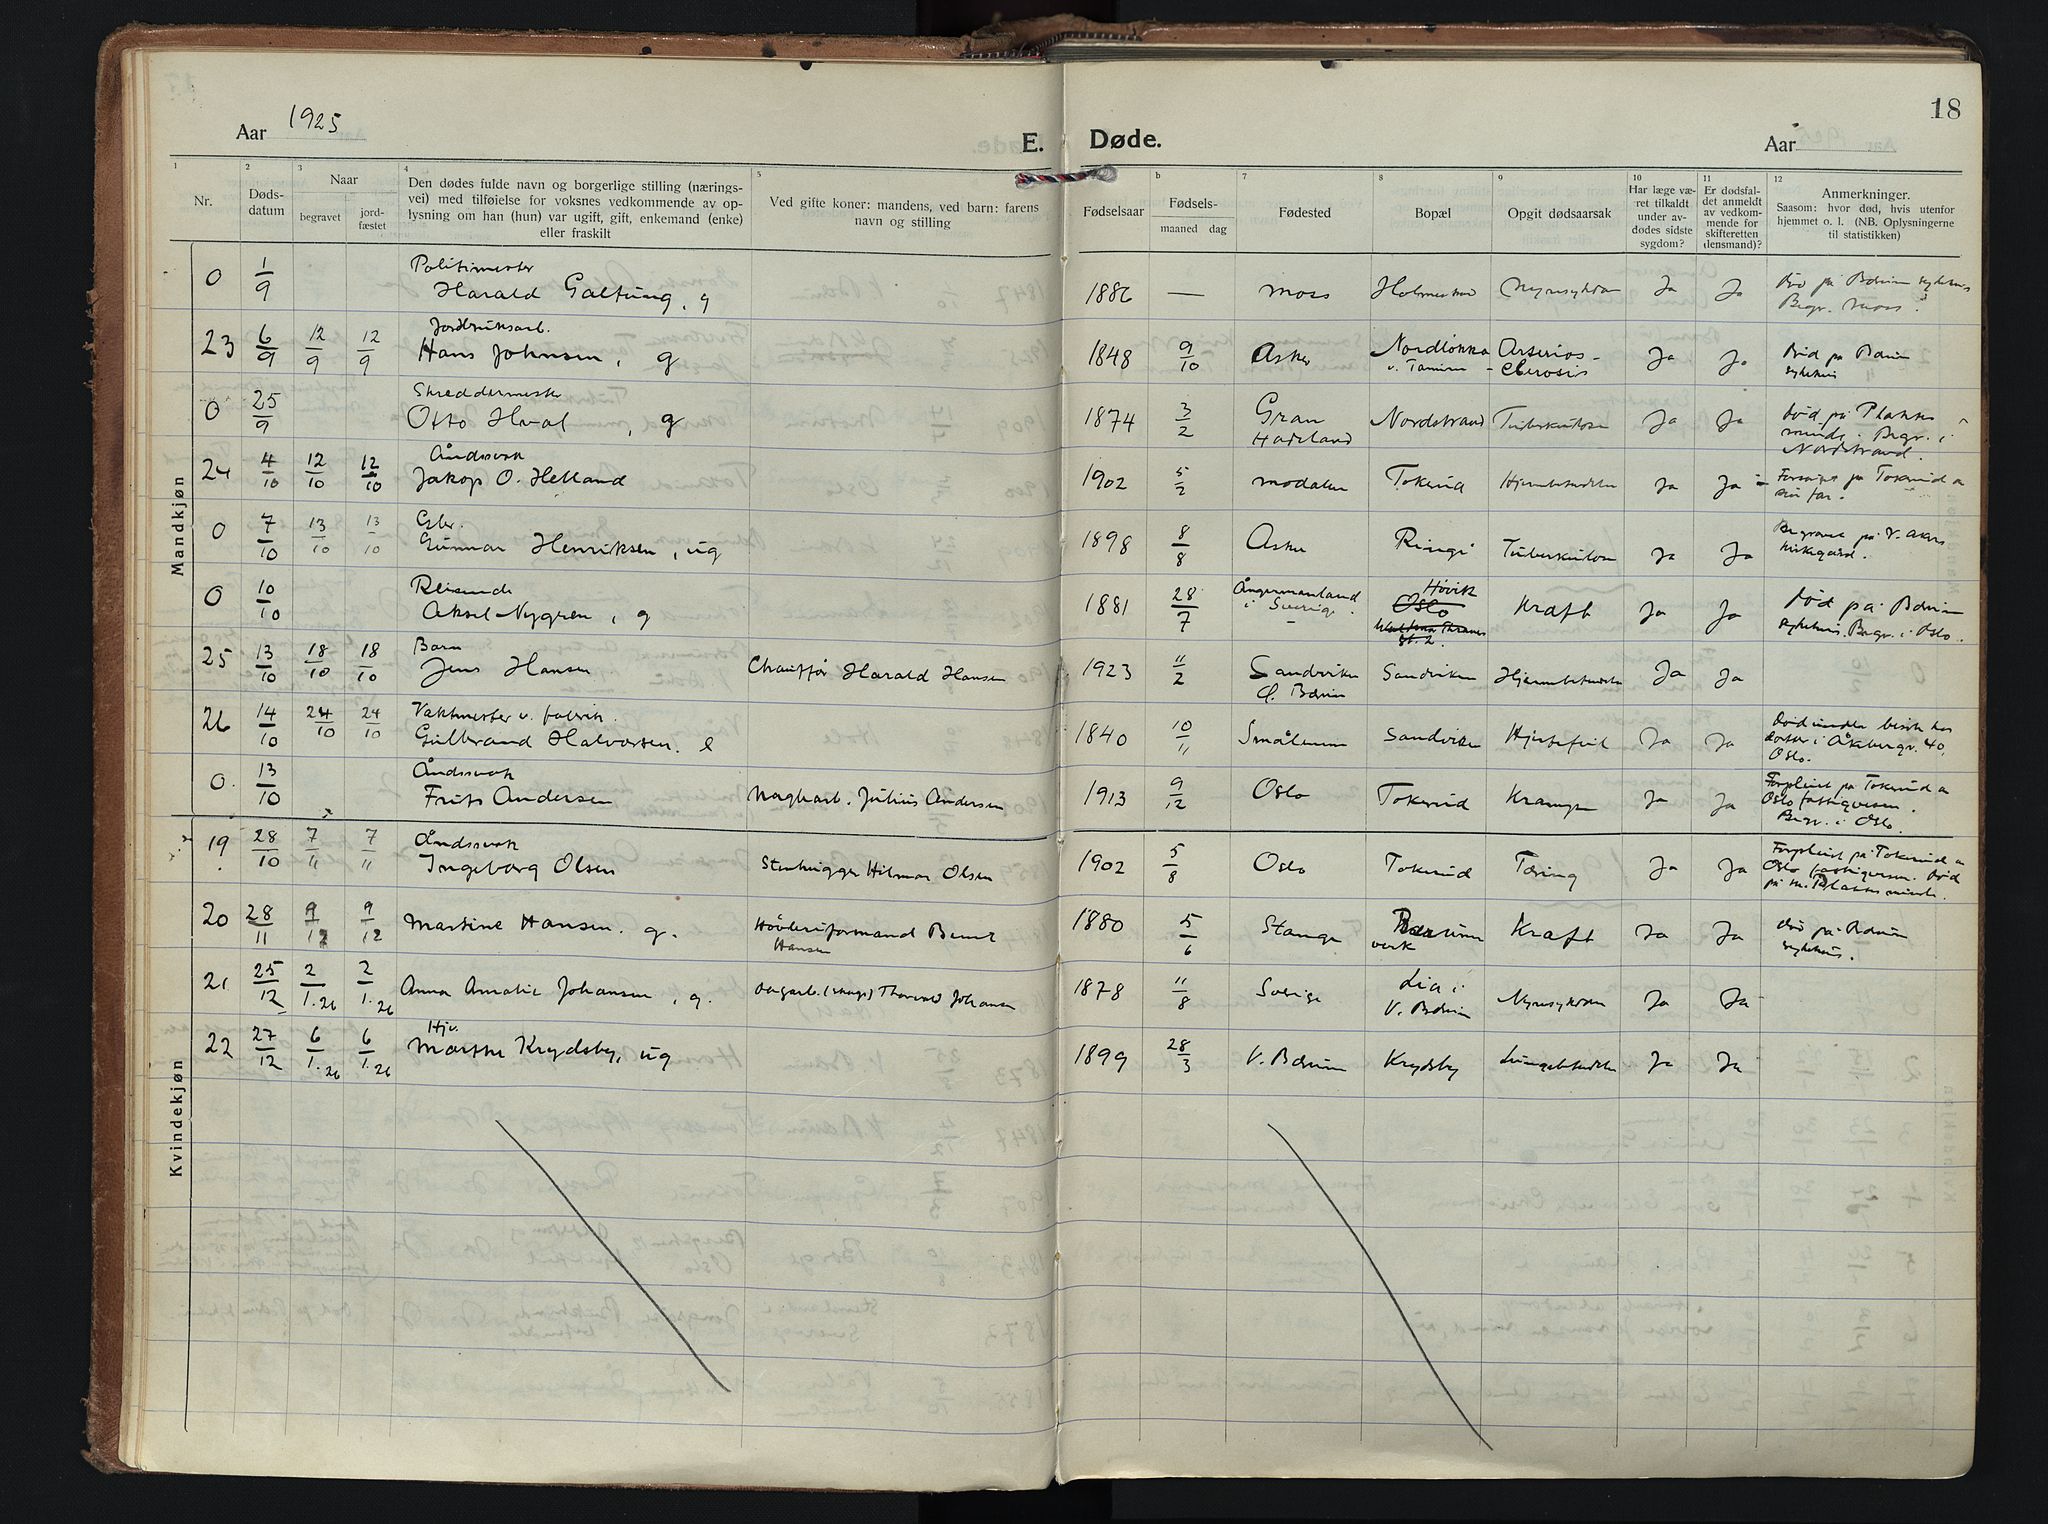 18
Aar 1925
E.
Døde.
Aar
1
2
3
4
5
b
7
8
9
10
11
12
Nr.
Døds-
datum
Naar
begravet
jord-
fæstet
Den dødes fulde navn og borgerlige stilling (nærings-
vei) med tilføielse for voksnes vedkommende av op-
lysning om han (hun) var ugift, gift, enkemand (enke)
eller fraskilt
Ved gifte koner: mandens, ved barn: farens
navn og stilling
Fødselsaar
Fødsels-
maaned dag
Fødested
Bopæl
Opgit dødsaarsak
Har læge væ-
ret tilkaldt
under av-
dødes sidste
sygdom?
Er dødsfal-
det anmeldt
av vedkom-
mende for
skifteretten
(lensmand)?
Anmerkninger.
Saasom: hvor død, hvis utenfor
hjemmet o. l. (NB. Oplysningerne
til statistikken)
Mandkjøn
0 1/9 Politimester
Harald Galtung, g 1886 — Moss Holmestrand Nyresykdom Ja Ja Død på Bærum sykehus
Begr. Moss
23 6/9 12/9 12/9 Jordbruksarb.
Hans Johnsen, g 1848 9/10 Asker Nordløkka Arterios-
v. Tanum clerosis Ja Ja Død på Bærum
sykehus
0 25/9 Skreddermester
Otto Hval, g 1874 3/2 Gran Nordstrand Tuberkulose Ja Ja Død på Platous
Hadeland minde. Begr. i
Nordstrand.
24 4/10 12/10 12/10 Åndssvak
Jakop O. Helland 1902 5/2 Modalen Tokerud Hjernebetendelse Ja Ja på Tokerud av
sin far.
0 7/10 13/10 13/10
Gunnar Henriksen, ug 1898 8/8 Asker Ringi Tuberkulose Ja Ja Begravet på V. Akers
kirkegård.
0 10/10 Reisende
Aksel Nygren, g 1881 28/7 Ångermanland Høvik
i Sverige Oslo Kræft Ja Ja Død på Bærum
sykehus. Begr. i Oslo.
25 13/10 18/10 18/10 Barn
Jens Hansen Chauffør Harald Hansen 1923 11/2 Sandviken Sandviken Hjernebetendelse Ja Ja
i Bærum
26 14/10 24/10 24/10 Vaktmester v. fabrik.
Gulbrand Halvorsen. e 1840 10/11 Smålenene Sandviken Hjertefeil Ja Ja Død under besøk hos
datter i Åkebergv. 40,
Oslo.
0. 13/10 Åndssvak
Frits Andersen Maglearb. Julius Andersen 1913 9/12 Oslo Tokerud Krampe Ja Ja Forpleiet på Tokerud av
Oslo fattigvesen.
Begr. i Oslo.
Kvindekjøn
19 28/10 7/11 7/11 Åndssvak
Ingeborg Olsen Stenhugger Hilmar Olsen 1902 5/8 Oslo Tokerud Tæring Ja Ja Forpleiet på Tokerud av
Oslo fattigvesen. Død
på minde.
20 28/11 9/12 9/12 Martine Hansen. g. Høvleriformand Bernt
Hansen 1880 5/6 Stange Bærums
verk Kræft Ja Ja død på Bærum
sykehus.
21 25/12 2/1.26 2/1.26 Anna Amalie Johansen, g. Dagarb. (skogs) Thorvald Johansen 1878 11/8 Sverige Lia i
V. Bærum Nyresykdom Ja Ja
22 27/12 6/1.26 6/1.26 Hjv.
Marthe Krydsby, ug 1899 28/3 V. Bærum Krydsby Lungebetendelse Ja Ja